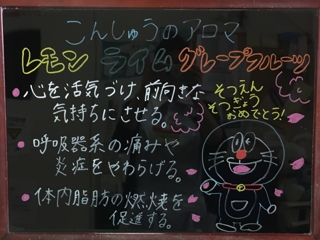 こんしゅうのアロマ
レモン ライム グレープフルーツ
心を活気づけ、前向きな
気持ちにさせる。
そつえん
そつぎょう
おめでとう!
呼吸器系の痛みや
炎症をやわらげる。
体内脂肪の燃焼を
促進する。